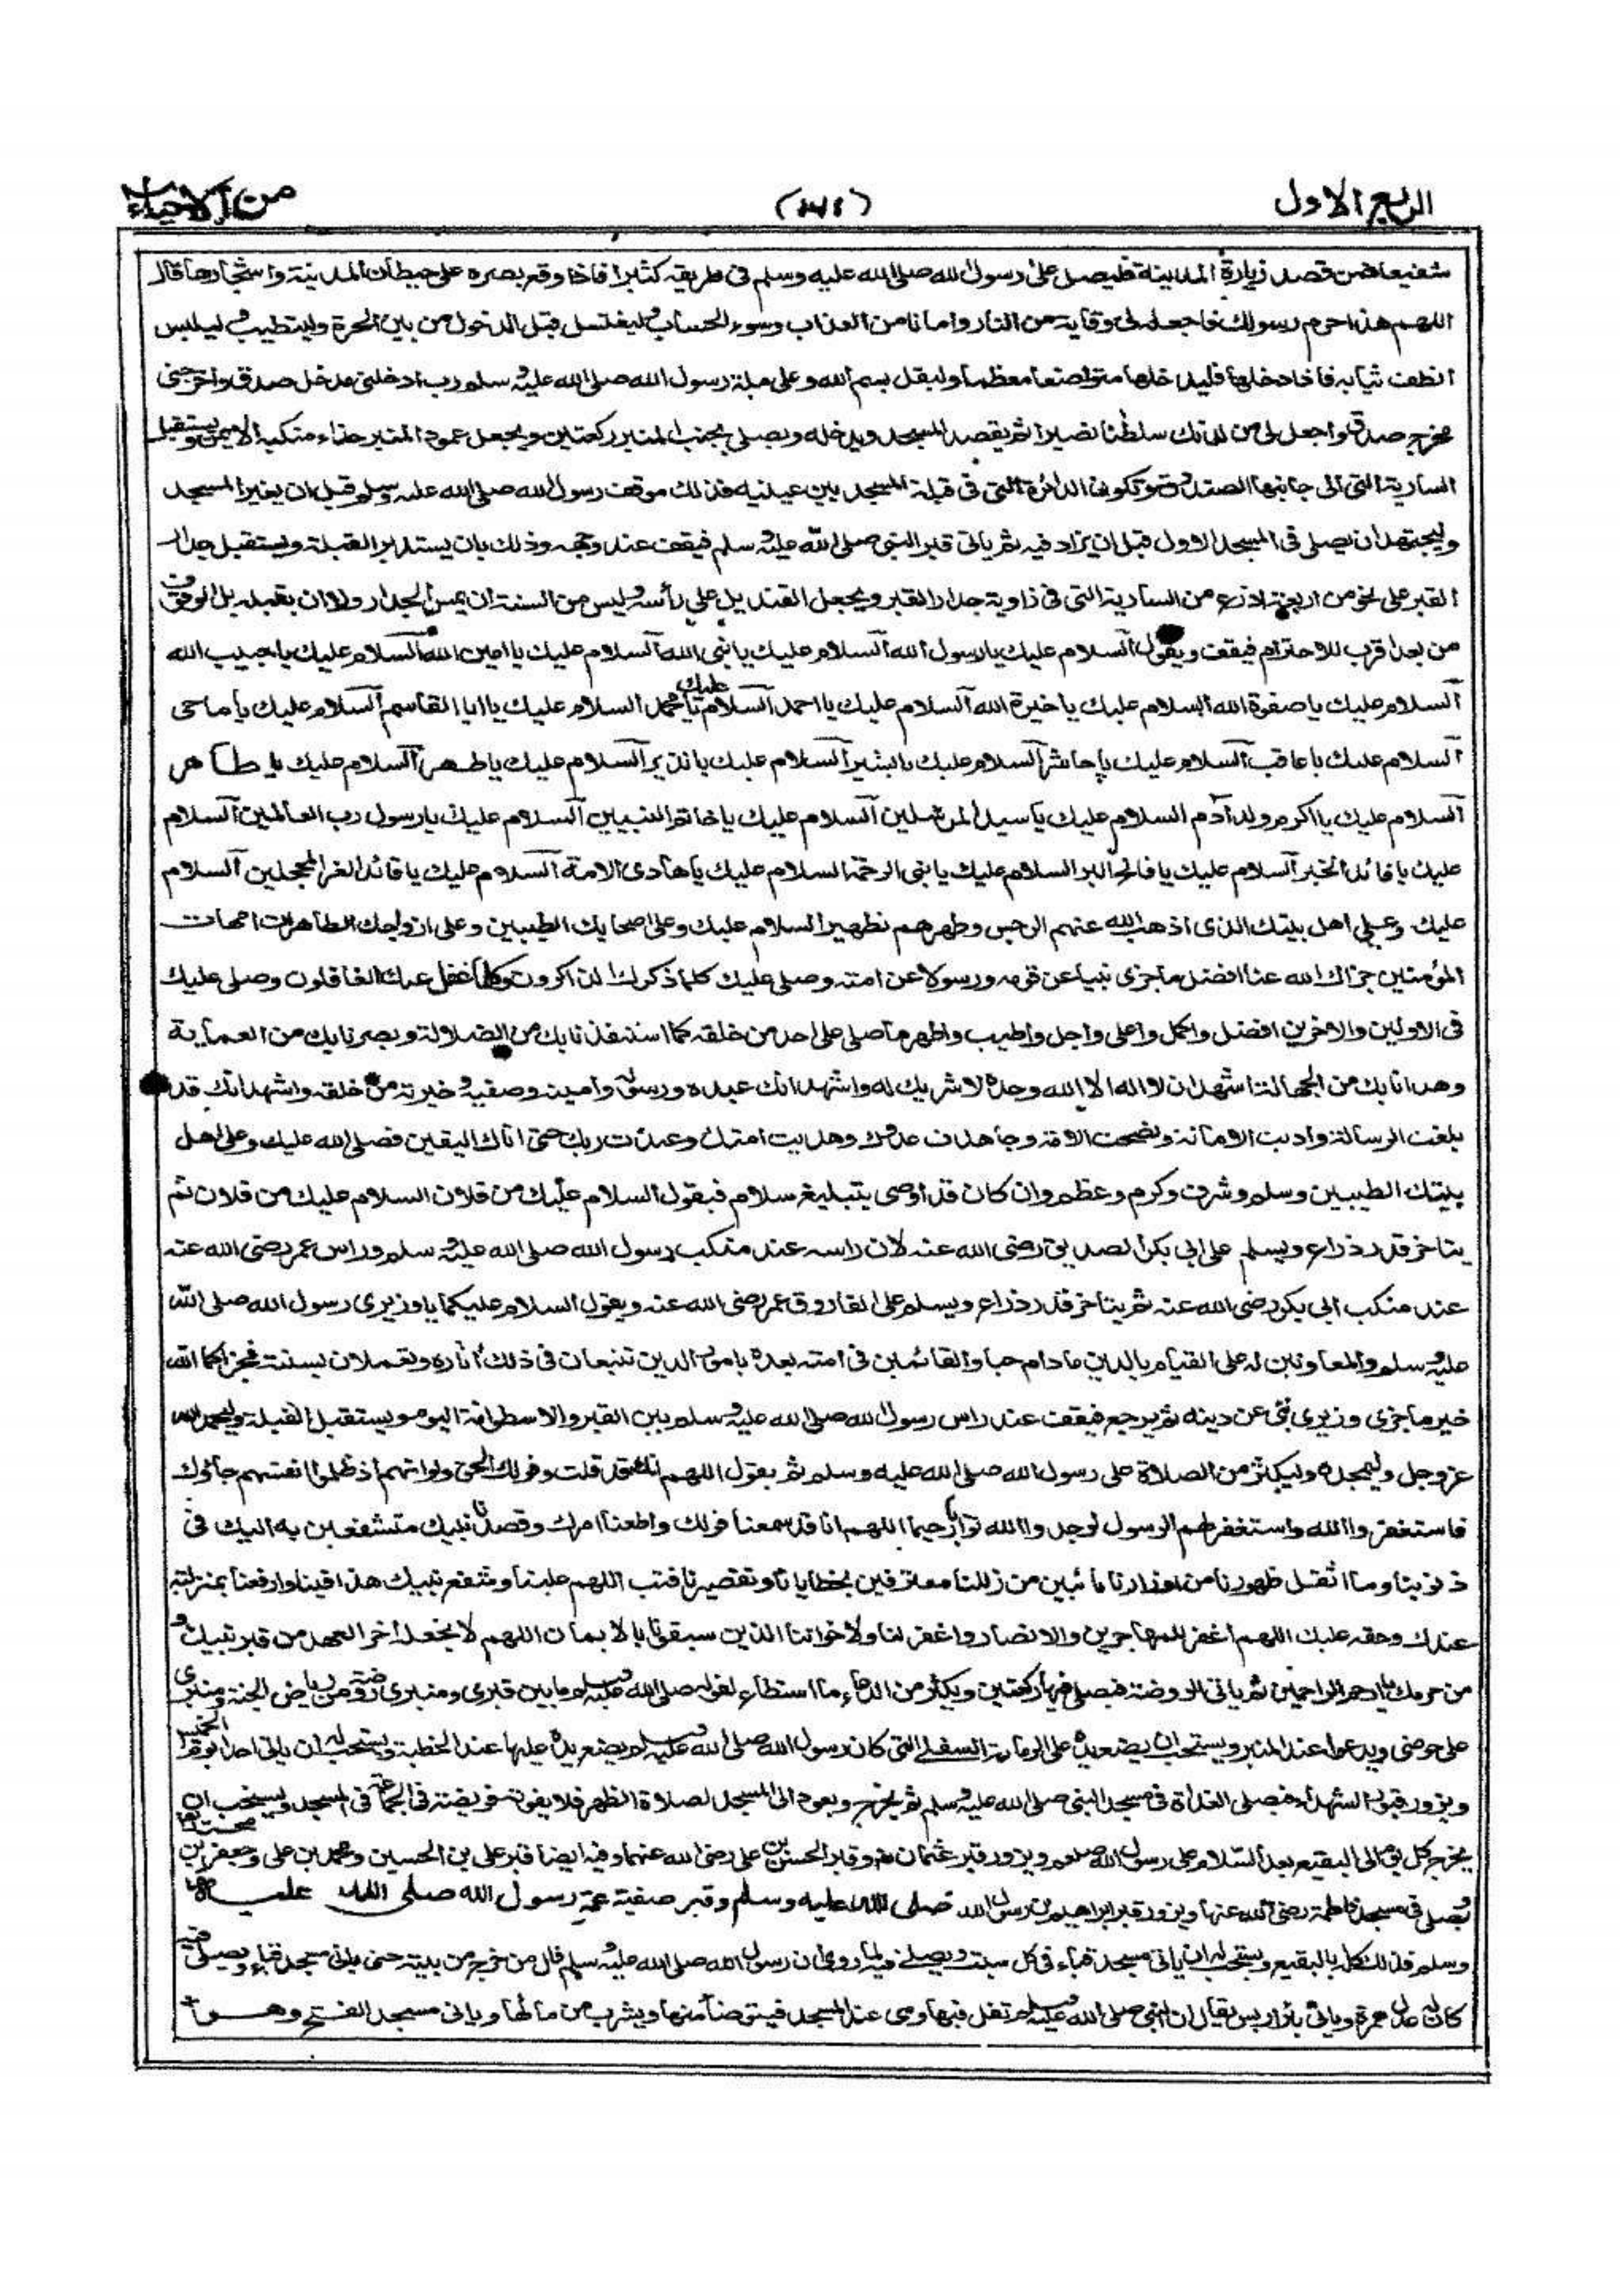 الربع الاول
من الاحياء
شفيعا فمن قصد زيارة المدينة فليصل على رسول الله صلى الله عليه وسلم فى طريقه كثيرا فاذا وقع بصره على حيطان المدينة واشجارها قال
اللهم هذا حرم رسولك فاجعله لى وقاية من النار وامانا من العذاب وسوء الحساب وليغتسل قبل الدخول من بين الحرة وليتطيب وليلبس
انظف ثيابه فاذا دخلها فليدخلها متواضعا معظما وليقل بسم الله وعلى ملة رسول الله صلى الله عليه وسلم رب ادخلنى مدخل صدق واخرجنى
مخرج صدق واجعل لى من لدنك سلطنا نصيرا ثم يقصد المسجد ويدخله ويصلى بجنب المنبر ركعتين ويجعل عمود المنبر حذاء منكبه الايمن ويستقبل
السارية التى الى جانبها الصندوق وتكون الدائرة التى فى قبلة المسجد بين عينيه فذلك موقف رسول الله صلى الله عليه وسلم قبل ان يغير المسجد
وليجتهد ان يصلى فى المسجد الاول قبل ان يزاد فيه ثم ياتى قبر النبى صلى الله عليه وسلم فيقف عند وجهه وذلك بان يستدبر القبلة ويستقبل جدار
القبر على نحو من اربعة اذرع من السارية التى فى زاوية جدار القبر ويجعل القنديل على رأسه وليس من السنة ان يمس الجدار ولا ان يقبله بل الوقوف
من بعد اقرب للاحترام فيقف ويقول السلام عليك يا رسول الله السلام عليك يا نبى الله السلام عليك يا امين الله السلام عليك يا حبيب الله
السلام عليك يا صفوة الله السلام عليك يا خيرة الله السلام عليك يا احمد السلام عليك يا محمد السلام عليك يا ابا القاسم السلام عليك يا ماحى
السلام عليك يا عاقب السلام عليك يا حاشر السلام عليك يا بشير السلام عليك يا نذير السلام عليك يا طهر السلام عليك يا طاهر
السلام عليك يا اكرم ولد آدم السلام عليك يا سيد المرسلين السلام عليك يا خاتم النبيين السلام عليك يا رسول رب العالمين السلام
عليك يا قائد الخير السلام عليك يا فاتح البر السلام عليك يا نبى الرحمة السلام عليك يا هادى الامة السلام عليك يا قائد الغر المحجلين السلام
عليك وعلى اهل بيتك الذى اذهب الله عنهم الرجس وطهرهم تطهيرا السلام عليك وعلى اصحابك الطيبين وعلى ازواجك الطاهرات امهات
المؤمنين جزاك الله عنا افضل ما جزى نبيا عن قومه ورسولا عن امته وصلى عليك كلما ذكرك الذاكرون وكلما غفل عنك الغافلون وصلى عليك
فى الاولين والاخرين افضل واكمل واعلى واجل واطيب واطهر ما صلى على احد من خلقه كما استنقذنا بك من الضلالة وبصرنا بك من العماية
وهدانا بك من الجهالة اشهد ان لا اله الا الله وحدة لا شريك له واشهد انك عبده ورسوله وامينه وصفيه وخيرته من خلقه واشهد انك قد
بلغت الرسالة واديت الامانة ونصحت الامة وجاهدت عدوك وهديت امتك وعبدت ربك حتى اتاك اليقين فصلى الله عليك وعلى اهل
بيتك الطيبين وسلم وشرف وكرم وعظم وان كان قد اوصى بتبليغ سلام فيقول السلام عليك من فلان السلام عليك من فلان ثم
يتاخر قدر ذراع ويسلم على ابى بكر الصديق رضى الله عنه لان راسه عند منكب رسول الله صلى الله عليه وسلم وراس عمر رضى الله عنه
عند منكب ابى بكر رضى الله عنه ثم يتاخر قدر ذراع ويسلم على الفاروق عمر رضى الله عنه ويقول السلام عليكما يا وزيرى رسول الله صلى الله
عليه وسلم والمعاونين له على القيام بالدين ما دام حيا والقائمين فى امته بعده بامور الدين تتبعان فى ذلك آثاره وتعملان بسنته فجزاكما الله
خير ما جزى وزيرى نبى عن دينه ثم يرجع فيقف عند راس رسول الله صلى الله عليه وسلم بين القبر والاسطوانة اليوم ويستقبل القبلة وليحمد الله
عز وجل وليمجده وليكثر من الصلاة على رسول الله صلى الله عليه وسلم ثم يقول اللهم انك قد قلت وقولك الحق ولو انهم اذ ظلموا انفسهم جاؤك
فاستغفروا الله واستغفر لهم الرسول لوجدوا الله توابا رحيما اللهم انا قد سمعنا قولك واطعنا امرك وقصدنا نبيك متشفعين به اليك فى
ذنوبنا وما اثقل ظهورنا من اوزارنا تائبين من زللنا معترفين بخطايانا وتقصيرنا فتب اللهم علينا وشفع نبيك هذا فينا وارفعنا بمنزلته
عندك وحقه عليك اللهم اغفر للمهاجرين والانصار واغفر لنا ولاخواننا الذين سبقونا بالايمان اللهم لا تجعله آخر العهد من قبر نبيك و
من حرمك يا ارحم الراحمين ثم ياتى الروضة فيصلى فيها ركعتين ويكثر من الدعاء ما استطاع لقوله صلى الله عليه وسلم ما بين قبرى ومنبرى روضة من رياض الجنة ومنبرى
على حوضى ويدعو عند المنبر ويستحب ان يضع يده على الرمانة السفلى التى كان رسول الله صلى الله عليه وسلم يضع يده عليها عند الخطبة ويستحب له ان ياتى احدا يوم الخميس
ويزور قبور الشهداء فيصلى الغداة فى مسجد النبى صلى الله عليه وسلم ثم يخرج ويعود الى المسجد لصلاة الظهر فلا يفوته فريضة فى الجماعة فى المسجد ويستحب ان
يخرج كل يوم الى البقيع بعد السلام على رسول الله صلعم ويزور قبر عثمان وقبر الحسن بن على رضى الله عنهما وفيه ايضا قبر على بن الحسين ومحمد بن على وجعفر بن
ويصلى فى مسجد فاطمة رضى الله عنها ويزور قبر ابراهيم بن رسول الله صلى الله عليه وسلم وقبر صفية عمة رسول الله صلى الله عليه
وسلم فذلك كله بالبقيع ويستحب له ان ياتى مسجد قباء فى كل سبت ويصلى فيه لما روى ان رسول الله صلى الله عليه وسلم قال من خرج من بيته حتى ياتى مسجد قباء ويصلى فيه
كان له عدل عمرة وياتى بئر اريس يقال ان النبى صلى الله عليه وسلم تفل فيها وهى عند المسجد فيتوضأ منها ويشرب من مائها وياتى مسجد الفتح وهو